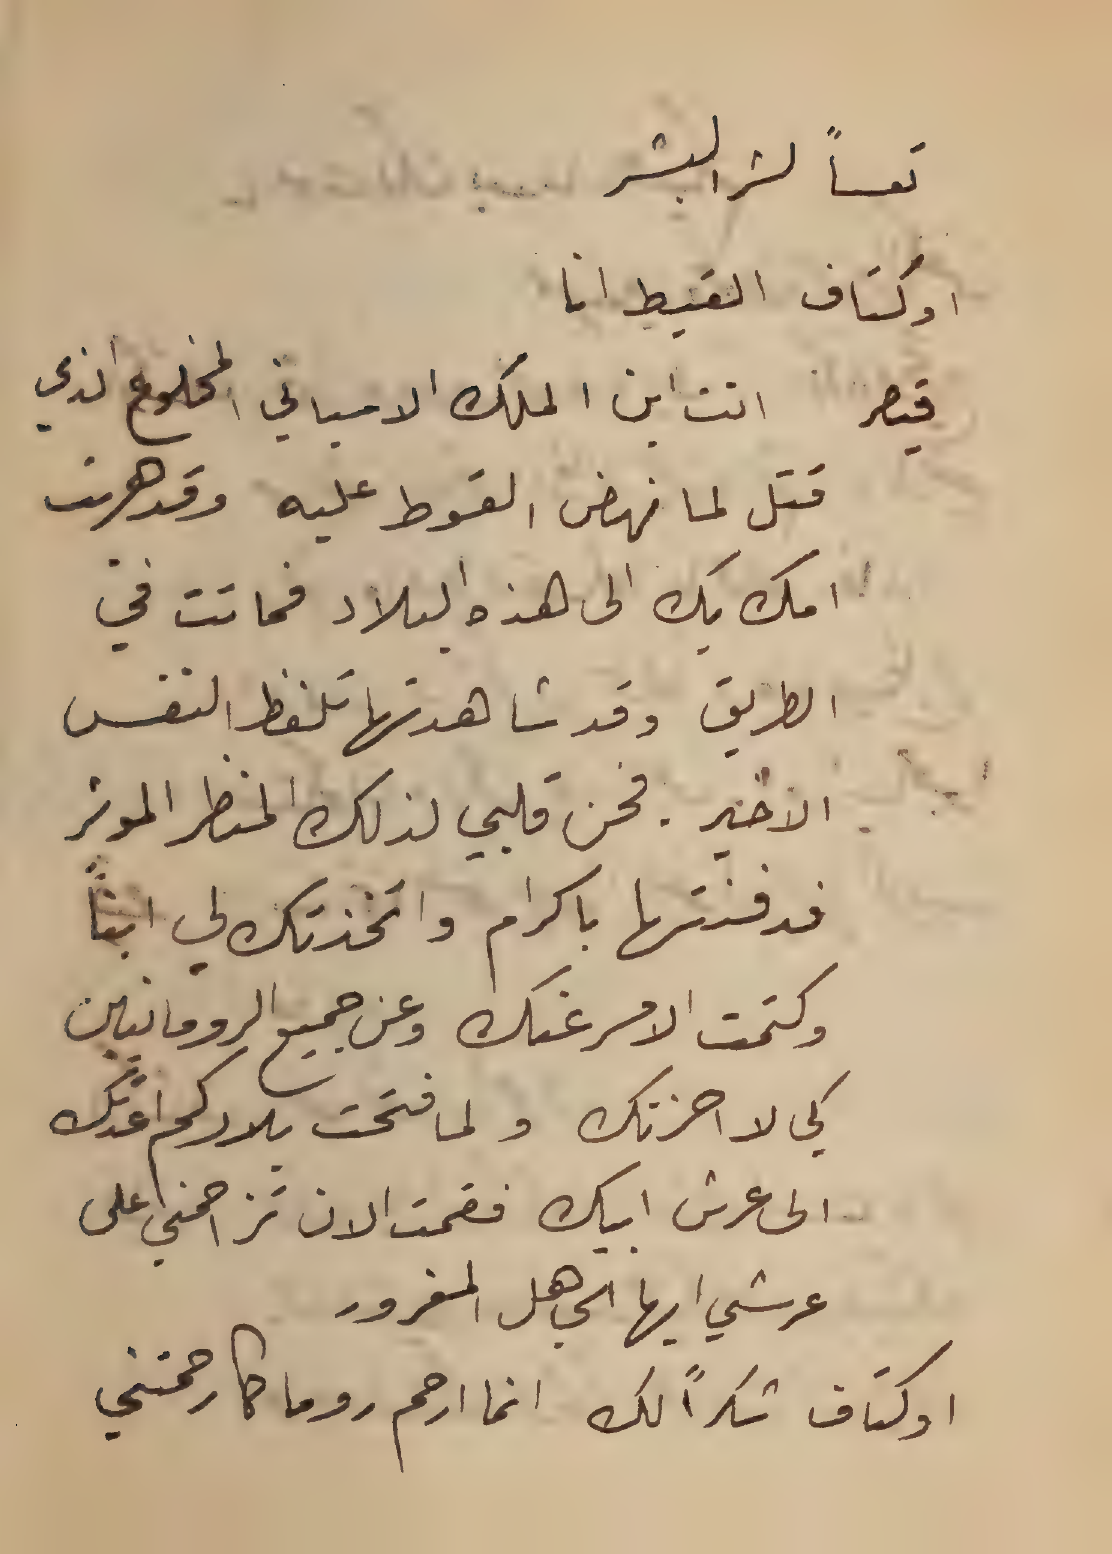 تعساً لشر البشر
اوكتاف القيط انا
قيصر انت ابن الملك الاسباني المخلوع الذي
قتل لما نهض القوط عليه وقد هربت
امك بك الى هذه البلاد فماتت في
الطريق وقد شاهدتها تلفظ النفس
الاخير. فحن قلبي لذلك المنظر الموثر
فدفنتها باكرام واتخذتك لي ابناً
وكتمت الامر عنك وعن جميع الرومانيين
كي لا احزنك ولما فتحت بلادكم اعدتك
الى عرش ابيك فقمت الان تزاحمني على
عرشي ايها الجاهل المغرور
اوكتاف شكراً لك انما ارحم روما كما رحمتني